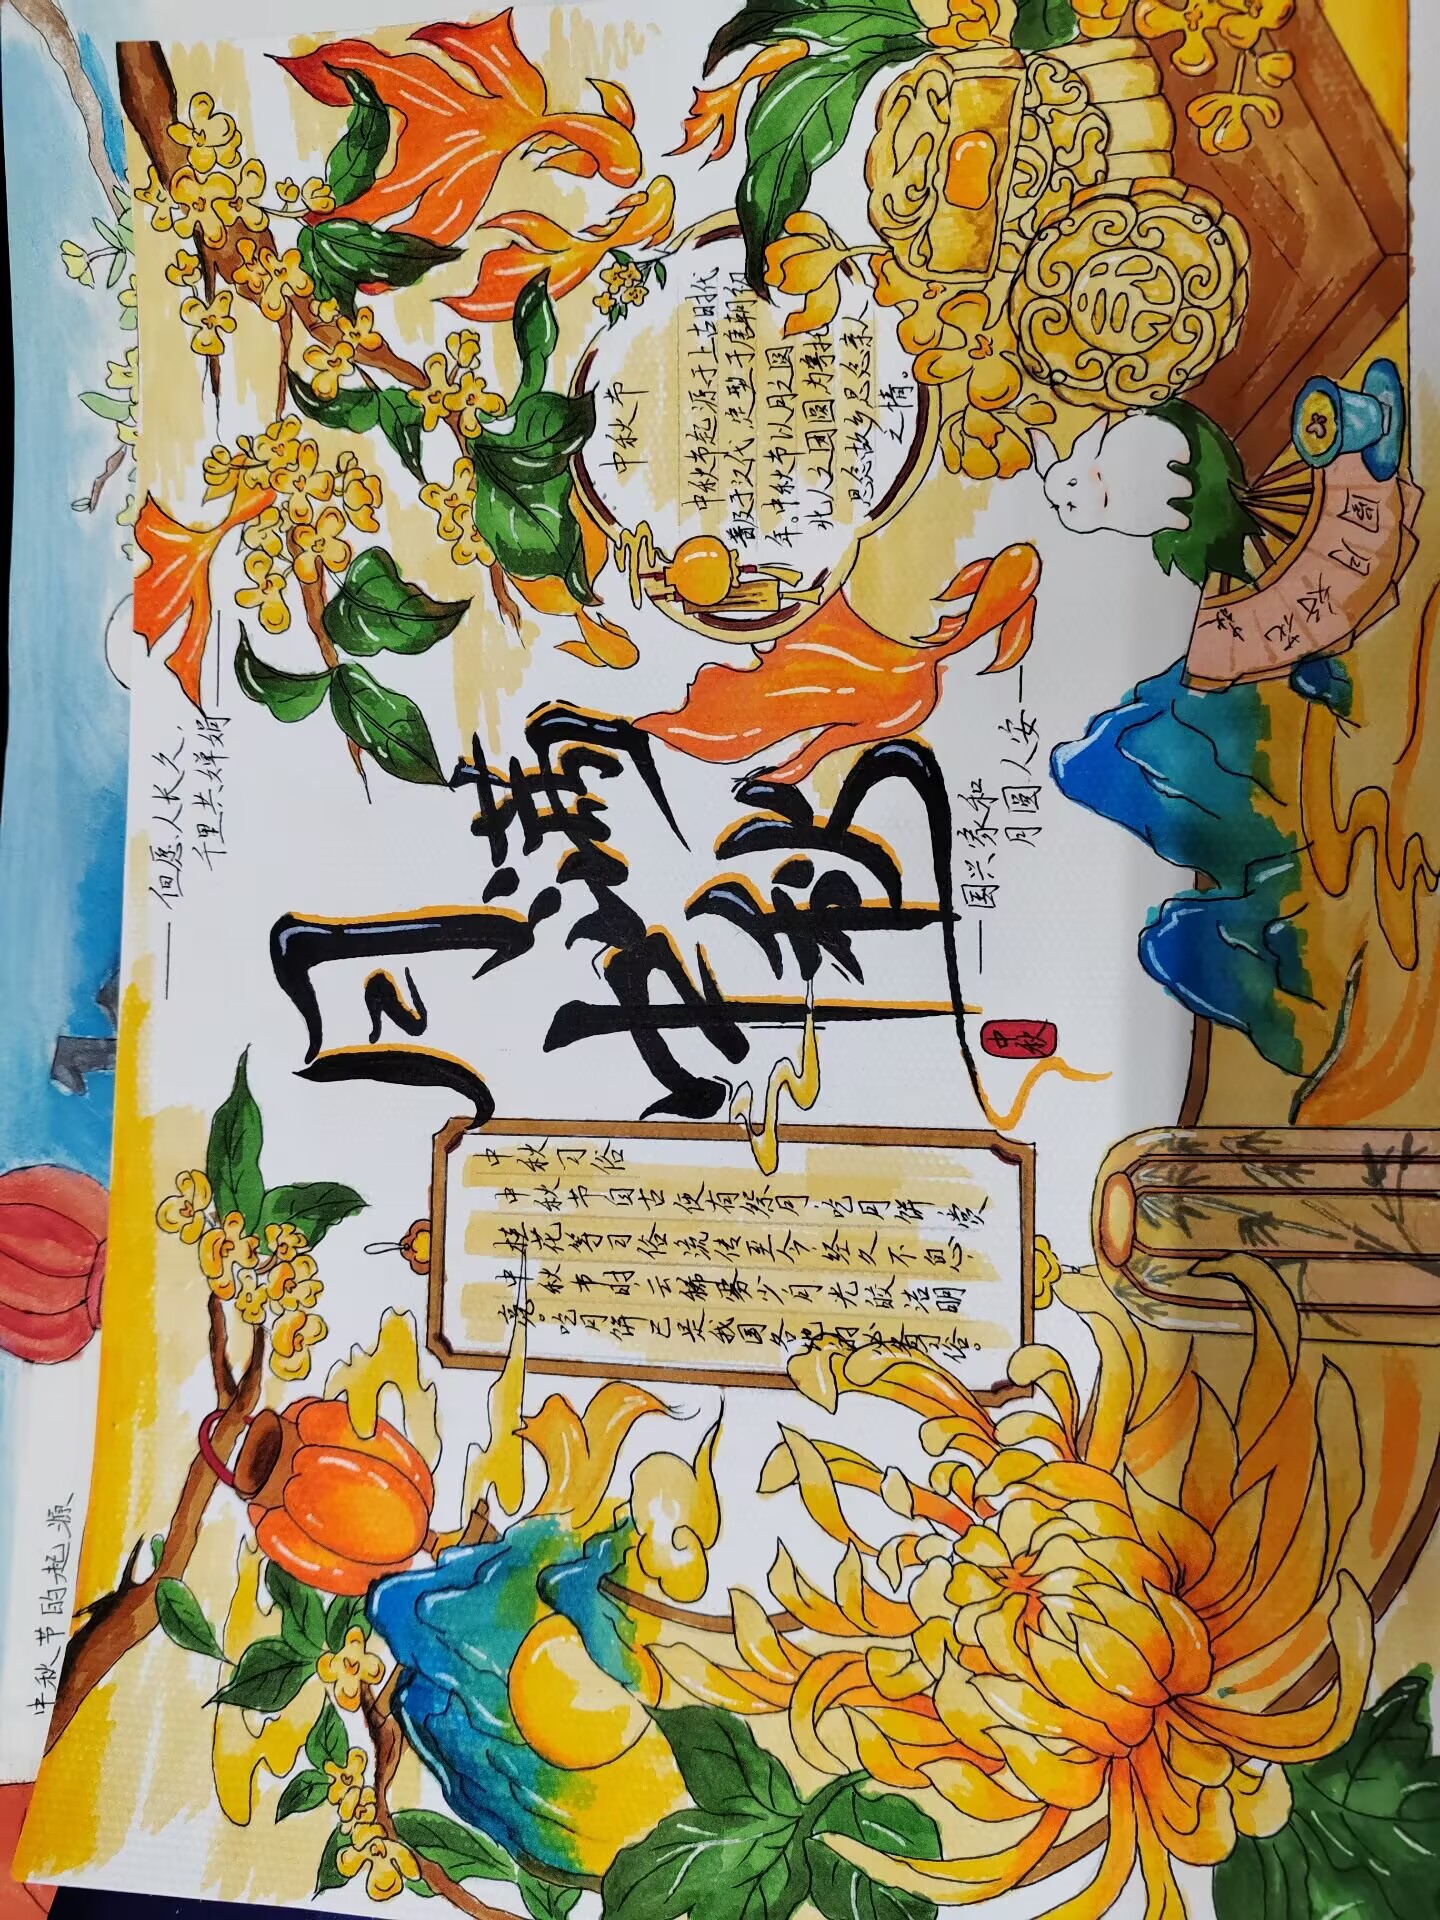 中秋节的起源
但愿人长久，
千里共婵娟
月满
中秋
国兴家和
月圆人安
中秋
中秋习俗
中秋节自古便有祭月.吃月饼赏
桂花等习俗流传至今经久不息.
中秋节时云稀雾少月光皎洁明
亮。吃月饼已是我国各地必备习俗。
中秋节
中秋节起源于上古时代
普及于汉代,定型于唐朝初
年。中秋节以月之圆
北人之团圆为寄托
思念故乡思念亲人
之情。
花好月圆